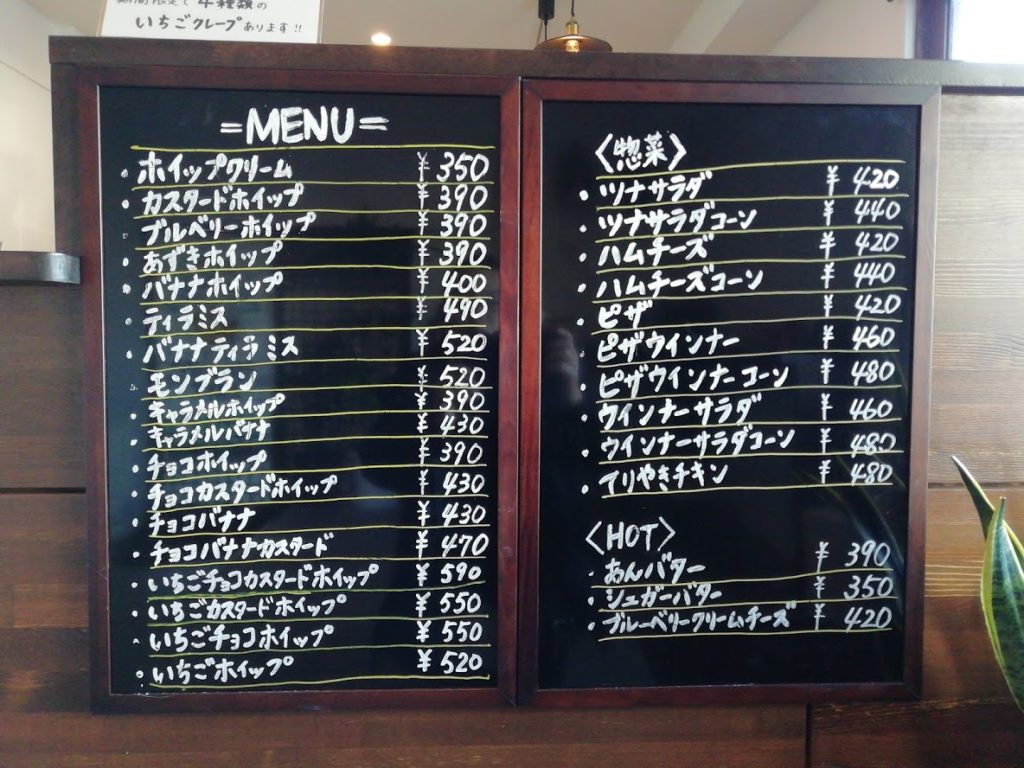 期間限定で4種類の
いちごクレープあります!!
=MENU=
・ホイップクリーム ¥350
・カスタードホイップ ¥390
・ブルベリーホイップ ¥390
・あずきホイップ ¥390
・バナナホイップ ¥400
・ティラミス ¥490
・バナナティラミス ¥520
・モンブラン ¥520
・キャラメルホイップ ¥390
・キャラメルバナナ ¥430
・チョコホイップ ¥390
・チョコカスタードホイップ ¥430
・チョコバナナ ¥430
・チョコバナナカスタード ¥470
・いちごチョコカスタードホイップ ¥590
・いちごカスタードホイップ ¥550
・いちごチョコホイップ ¥550
・いちごホイップ ¥520
〈惣菜〉
・ツナサラダ ¥420
・ツナサラダコーン ¥440
・ハムチーズ ¥420
・ハムチーズコーン ¥440
・ピザ ¥420
・ピザウインナー ¥460
・ピザウインナーコーン ¥480
・ウインナーサラダ ¥460
・ウインナーサラダコーン ¥480
・テリやきチキン ¥480
〈HOT〉
・あんバター ¥390
・シュガーバター ¥350
・ブルーベリークリームチーズ ¥420